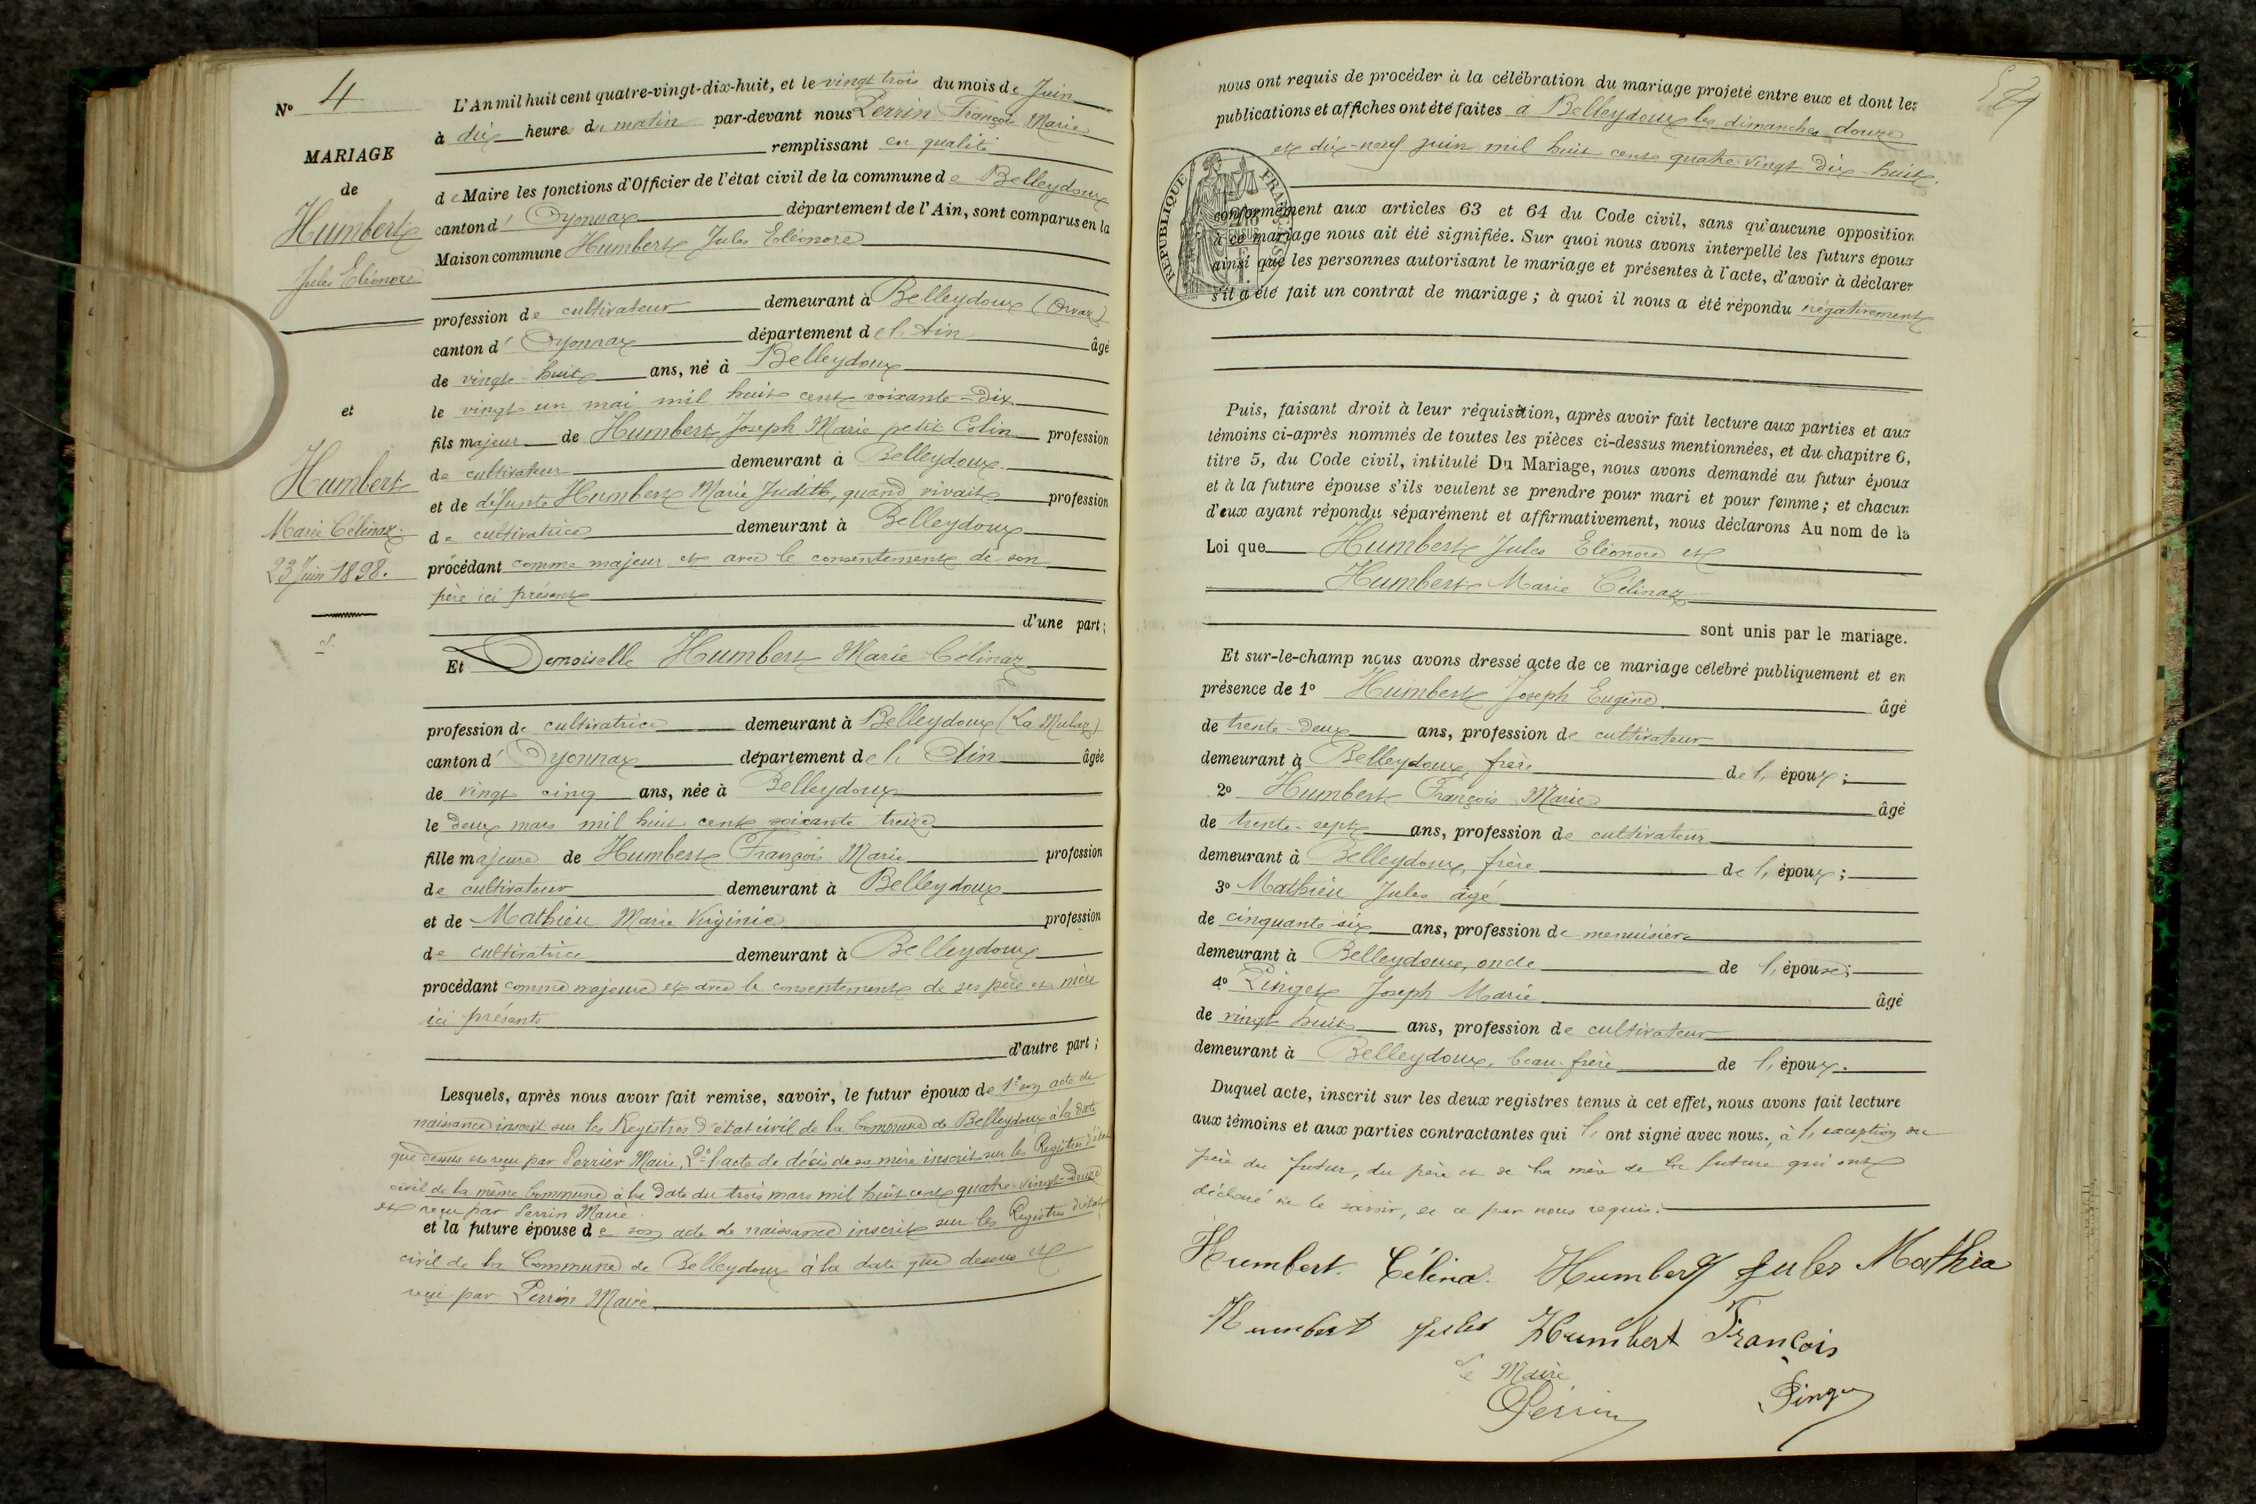 N° 4
MARIAGE
de
Humbert
Jules Eléonore
et
Humbert
Marie Célinaz
23 Juin 1898.
L'An mil huit cent quatre-vingt-dix-huit, et le vingt trois du mois de Juin
à dix heure du matin par-devant nous Perrin François Marie
remplissant en qualité
de Maire les fonctions d'Officier de l'état civil de la commune de Belleydoux
canton d' Oyonnax département de l'Ain, sont comparus en la
Maison commune Humbert Jules Eléonore
profession de cultivateur demeurant à Belleydoux (Orvaz)
canton d' Oyonnax département de l'Ain âgé
de vingt-huit ans, né à Belleydoux
le vingt un mai mil huit cent soixante-dix
fils majeur de Humbert Joseph Marie petit Colin profession
de cultivateur demeurant à Belleydoux.
et de défunte Humbert Marie Judith, quand vivait profession
de cultivatrice demeurant à Belleydoux
procédant comme majeur et avec le consentement de son
père ici présent
d'une part;
Et Demoiselle Humbert Marie Célinaz
profession de cultivatrice demeurant à Belleydoux (La Mulaz)
canton d' Oyonnax département de l'Ain âgée
de vingt cinq ans, née à Belleydoux
le deux mars mil huit cent soixante treize
fille majeure de Humbert François Marie profession
de cultivateur demeurant à Belleydoux
et de Mathieu Marie Virginie profession
de cultivatrice demeurant à Belleydoux
procédant comme majeure et avec le consentement de ses père et mère
ici présents
d'autre part;
Lesquels, après nous avoir fait remise, savoir, le futur époux de 1° son acte de
naissance inscrit sur les Registres d'état civil de la Commune de Belleydoux à la date
que dessus et reçu par Perrier Maire, 2° l'acte de décès de sa mère inscrit sur les Registres d'état
civil de la même Commune à la date du trois mars mil huit cent quatre-vingt-douze
et reçu par Perrin Maire
et la future épouse de son acte de naissance inscrit sur les Registres d'état
civil de la Commune de Belleydoux à la date que dessus et
reçu par Perrin Maire
nous ont requis de procéder à la célébration du mariage projeté entre eux et dont les
publications et affiches ont été faites à Belleydoux les dimanches douze
et dix-neuf juin mil huit cent quatre-vingt dix-huit.
REPUBLIQUE FRANÇAISE
conformément aux articles 63 et 64 du Code civil, sans qu'aucune opposition
à ce mariage nous ait été signifiée. Sur quoi nous avons interpellé les futurs époux
ainsi que les personnes autorisant le mariage et présentes à l'acte, d'avoir à déclarer
s'il a été fait un contrat de mariage; à quoi il nous a été répondu négativement
Puis, faisant droit à leur réquisition, après avoir fait lecture aux parties et aux
témoins ci-après nommés de toutes les pièces ci-dessus mentionnées, et du chapitre 6,
titre 5, du Code civil, intitulé Du Mariage, nous avons demandé au futur époux
et à la future épouse s'ils veulent se prendre pour mari et pour femme; et chacun
d'eux ayant répondu séparément et affirmativement, nous déclarons Au nom de la
Loi que Humbert Jules Eléonore et
Humbert Marie Célinaz
sont unis par le mariage.
Et sur-le-champ nous avons dressé acte de ce mariage célébré publiquement et en
présence de 1° Humbert Joseph Eugène âgé
de trente-deux ans, profession de cultivateur
demeurant à Belleydoux, frère de l'époux;
2° Humbert François Marie âgé
de trente-sept ans, profession de cultivateur
demeurant à Belleydoux, frère de l'époux;
3° Mathieu Jules âgé
de cinquante six ans, profession de menuisier
demeurant à Belleydoux, oncle de l'épouse;
4° Pinget Joseph Marie âgé
de vingt huit ans, profession de cultivateur
demeurant à Belleydoux, beau-frère de l'époux.
Duquel acte, inscrit sur les deux registres tenus à cet effet, nous avons fait lecture
aux témoins et aux parties contractantes qui l'ont signé avec nous., à l'exception du
père du futur, du père et de la mère de la future qui ont
déclaré ne le savoir, de ce par nous requis.
Humbert Célina. Humbert Jules Mathieu
Humbert Jules Humbert François
Le Maire
Perrin Pinget